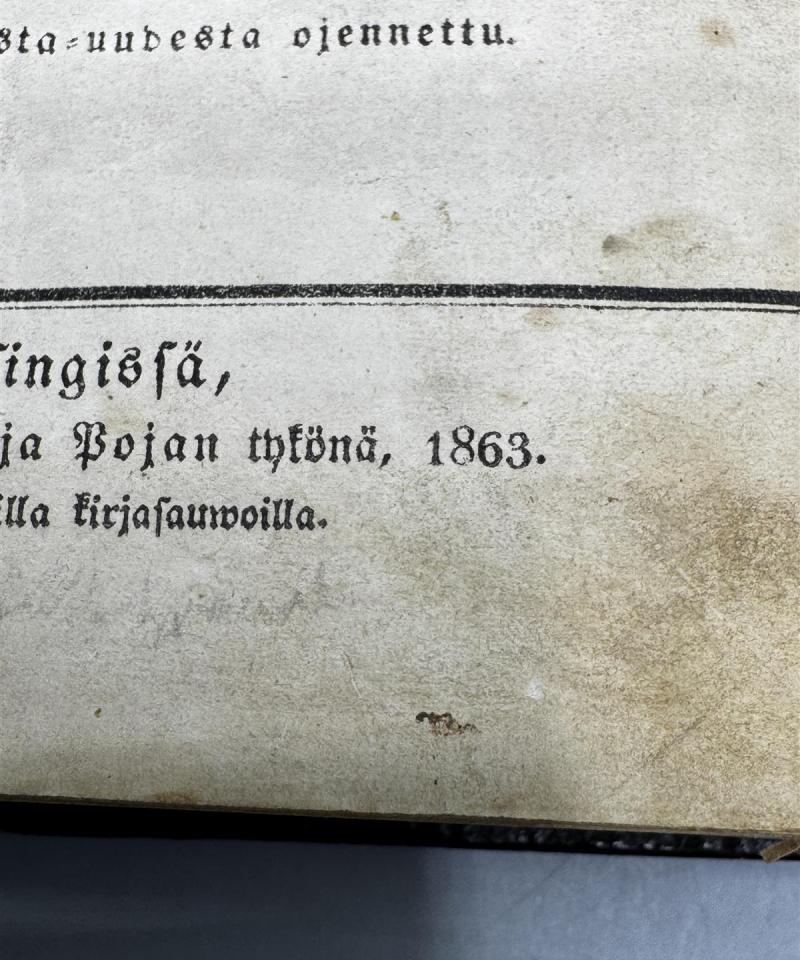 sta-uudesta ojennettu.
singissä,
ja Pojan tykönä, 1863.
illa kirjasauwoilla.